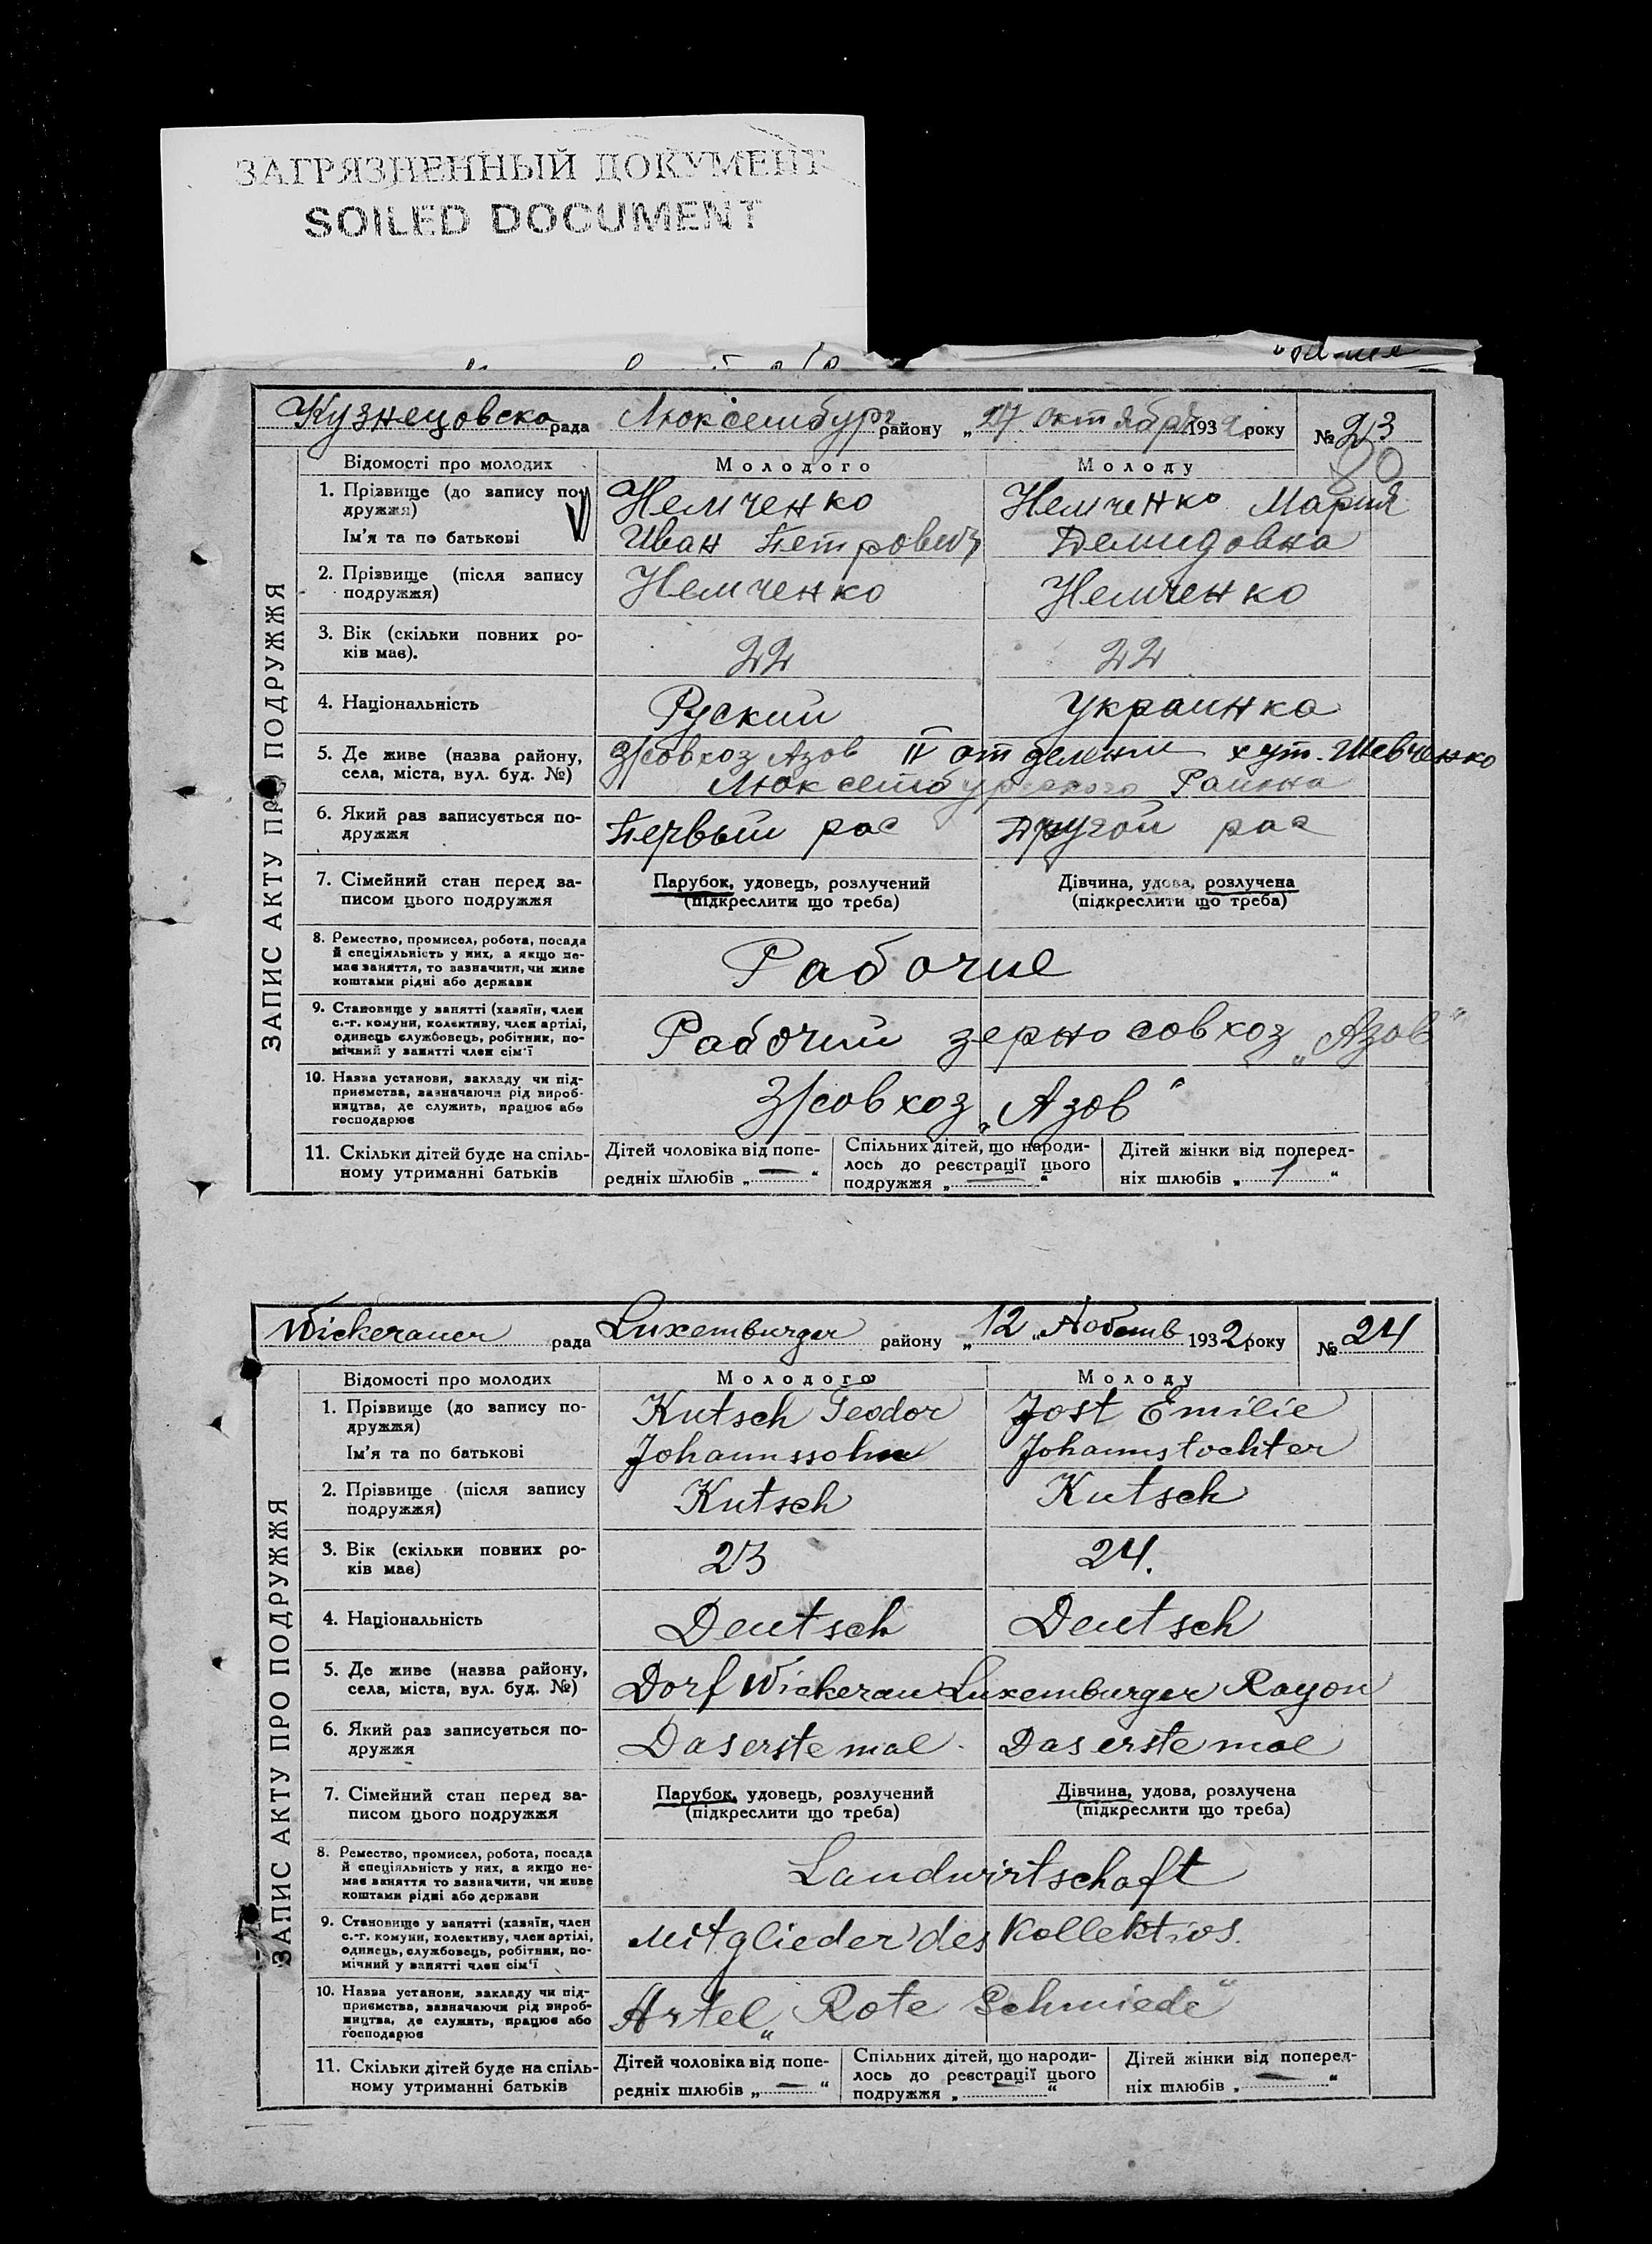 ЗАГРЯЗНЕННЫЙ ДОКУМЕНТ
SOILED DOCUMENT
Кузнецовско рада Люксембург району „27 октября 1932 року № 23
80
ЗАПИС АКТУ ПРО ПОДРУЖЖЯ
Відомості про молодих Молодого Молоду
1. Прізвище (до запису по- Немченко Немченко Мария
дружжя)
Ім'я та по батькові Иван Петрович Демидовна
2. Прізвище (після запису Немченко Немченко
подружжя)
3. Вік (скільки повних ро- 22 22
ків має).
4. Національність Руский Украинка
5. Де живе (назва району, З/совхоз Азов IV отделении хут. Шевченко
села, міста, вул. буд. №) Люксембургского Района
6. Який раз записується по- Первый рас Другой рас
дружжя
7. Сімейний стан перед за- Парубок, удовець, розлучений Дівчина, удова, розлучена
писом цього подружжя (підкреслити що треба) (підкреслити що треба)
8. Ремество, промисел, робота, посада
й спеціяльність у них, а якщо не- Рабочие
має заняття, то зазначити, чи живе
коштами рідні або держави
9. Становище у занятті (хазяїн, член
с.-г. комуни, колективу, член артілі, Рабочий зерно совхоз „Азов“
одинець службовець, робітник, по-
мічний у занятті член сім'ї
10. Назва установи, закладу чи під-
приємства, зазначаючи рід вироб- З/совхоз „Азов“
ництва, де служить, працює або
господарює
11. Скільки дітей буде на спіль- Дітей чоловіка від попе- Спільних дітей, що народи- Дітей жінки від поперед-
ному утриманні батьків редніх шлюбів „ — “ лось до реєстрації цього ніх шлюбів „ 1 “
подружжя „ — “
Wickerauer рада Luxemburger району „12 „ 1932 року № 24
ЗАПИС АКТУ ПРО ПОДРУЖЖЯ
Відомості про молодих Молодого Молоду
1. Прізвище (до запису по- Kutsch Teodor Jost Emilie
дружжя)
Ім'я та по батькові Johannssohn Johannstochter
2. Прізвище (після запису Kutsch Kutsch
подружжя)
3. Вік (скільки повних ро- 23 24.
ків має)
4. Національність Deutsch Deutsch
5. Де живе (назва району, Dorf Wickerau Luxemburger Rayon
села, міста, вул. буд. №)
6. Який раз записується по- Das erste mal Das erste mal
дружжя
7. Сімейний стан перед за- Парубок, удовець, розлучений Дівчина, удова, розлучена
писом цього подружжя (підкреслити що треба) (підкреслити що треба)
8. Ремество, промисел, робота, посада
й спеціяльність у них, а якщо не- Landwirtschaft
має заняття то зазначити, чи живе
коштами рідні або держави
9. Становище у занятті (хазяїн, член
с.-г. комуни, колективу, член артілі, Mitglieder des Kollektivs.
одинець, службовець, робітник, по-
мічний у занятті член сім'ї
10. Назва установи, закладу чи під-
приємства, зазначаючи рід вироб- Artel „Rote Schmiede“
ництва, де служить, працює або
господарює
11. Скільки дітей буде на спіль- Дітей чоловіка від попе- Спільних дітей, що народи- Дітей жінки від поперед-
ному утриманні батьків редніх шлюбів „ — “ лось до реєстрації цього ніх шлюбів „ — “
подружжя „ — “